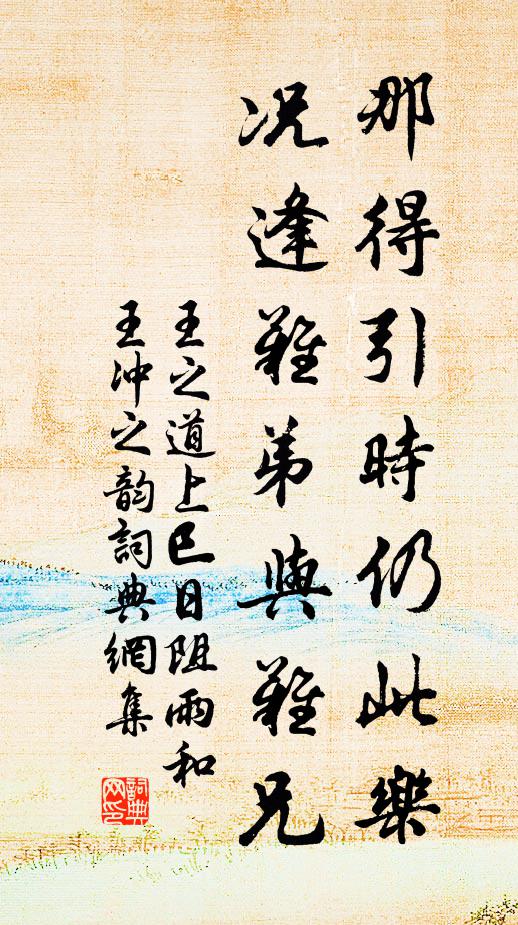 那得引時仍此樂
况逢難弟與難兄
王之道上巳日阻雨和
王冲之韵詞典網集
詞典
网印